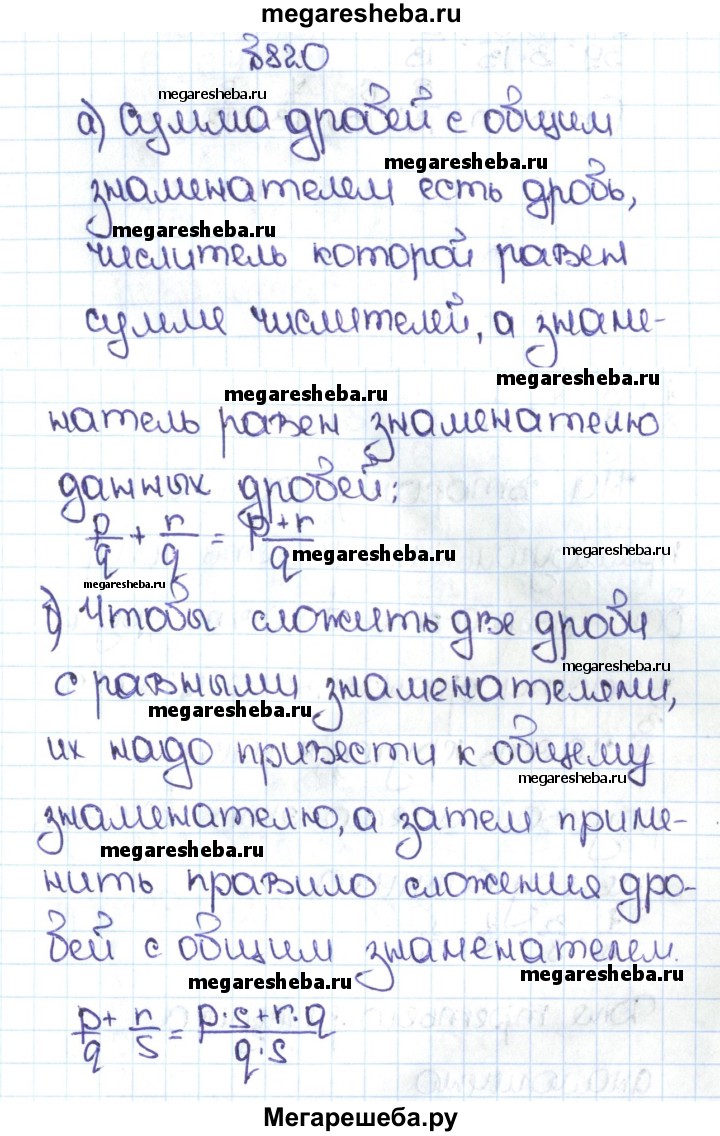 megaresheba.ru
№820
megaresheba.ru
а) Сумма дробей с общим
megaresheba.ru
знаменателем есть дробь,
megaresheba.ru
числитель которой равен
сумме числителей, а знаме-
megaresheba.ru
megaresheba.ru
натель равен знаменателю
данных дробей:
p/q + r/q = p+r/q
megaresheba.ru
megaresheba.ru
megaresheba.ru
б) Чтобы сложить две дроби
megaresheba.ru
с равными знаменателями,
megaresheba.ru
их надо привести к общему
megaresheba.ru
знаменателю, а затем приме-
megaresheba.ru
нить правило сложения дро-
бей с общим знаменателем.
megaresheba.ru
megaresheba.ru
p/q + r/s = p·s+r·q/q·s
Мегарешеба.ру